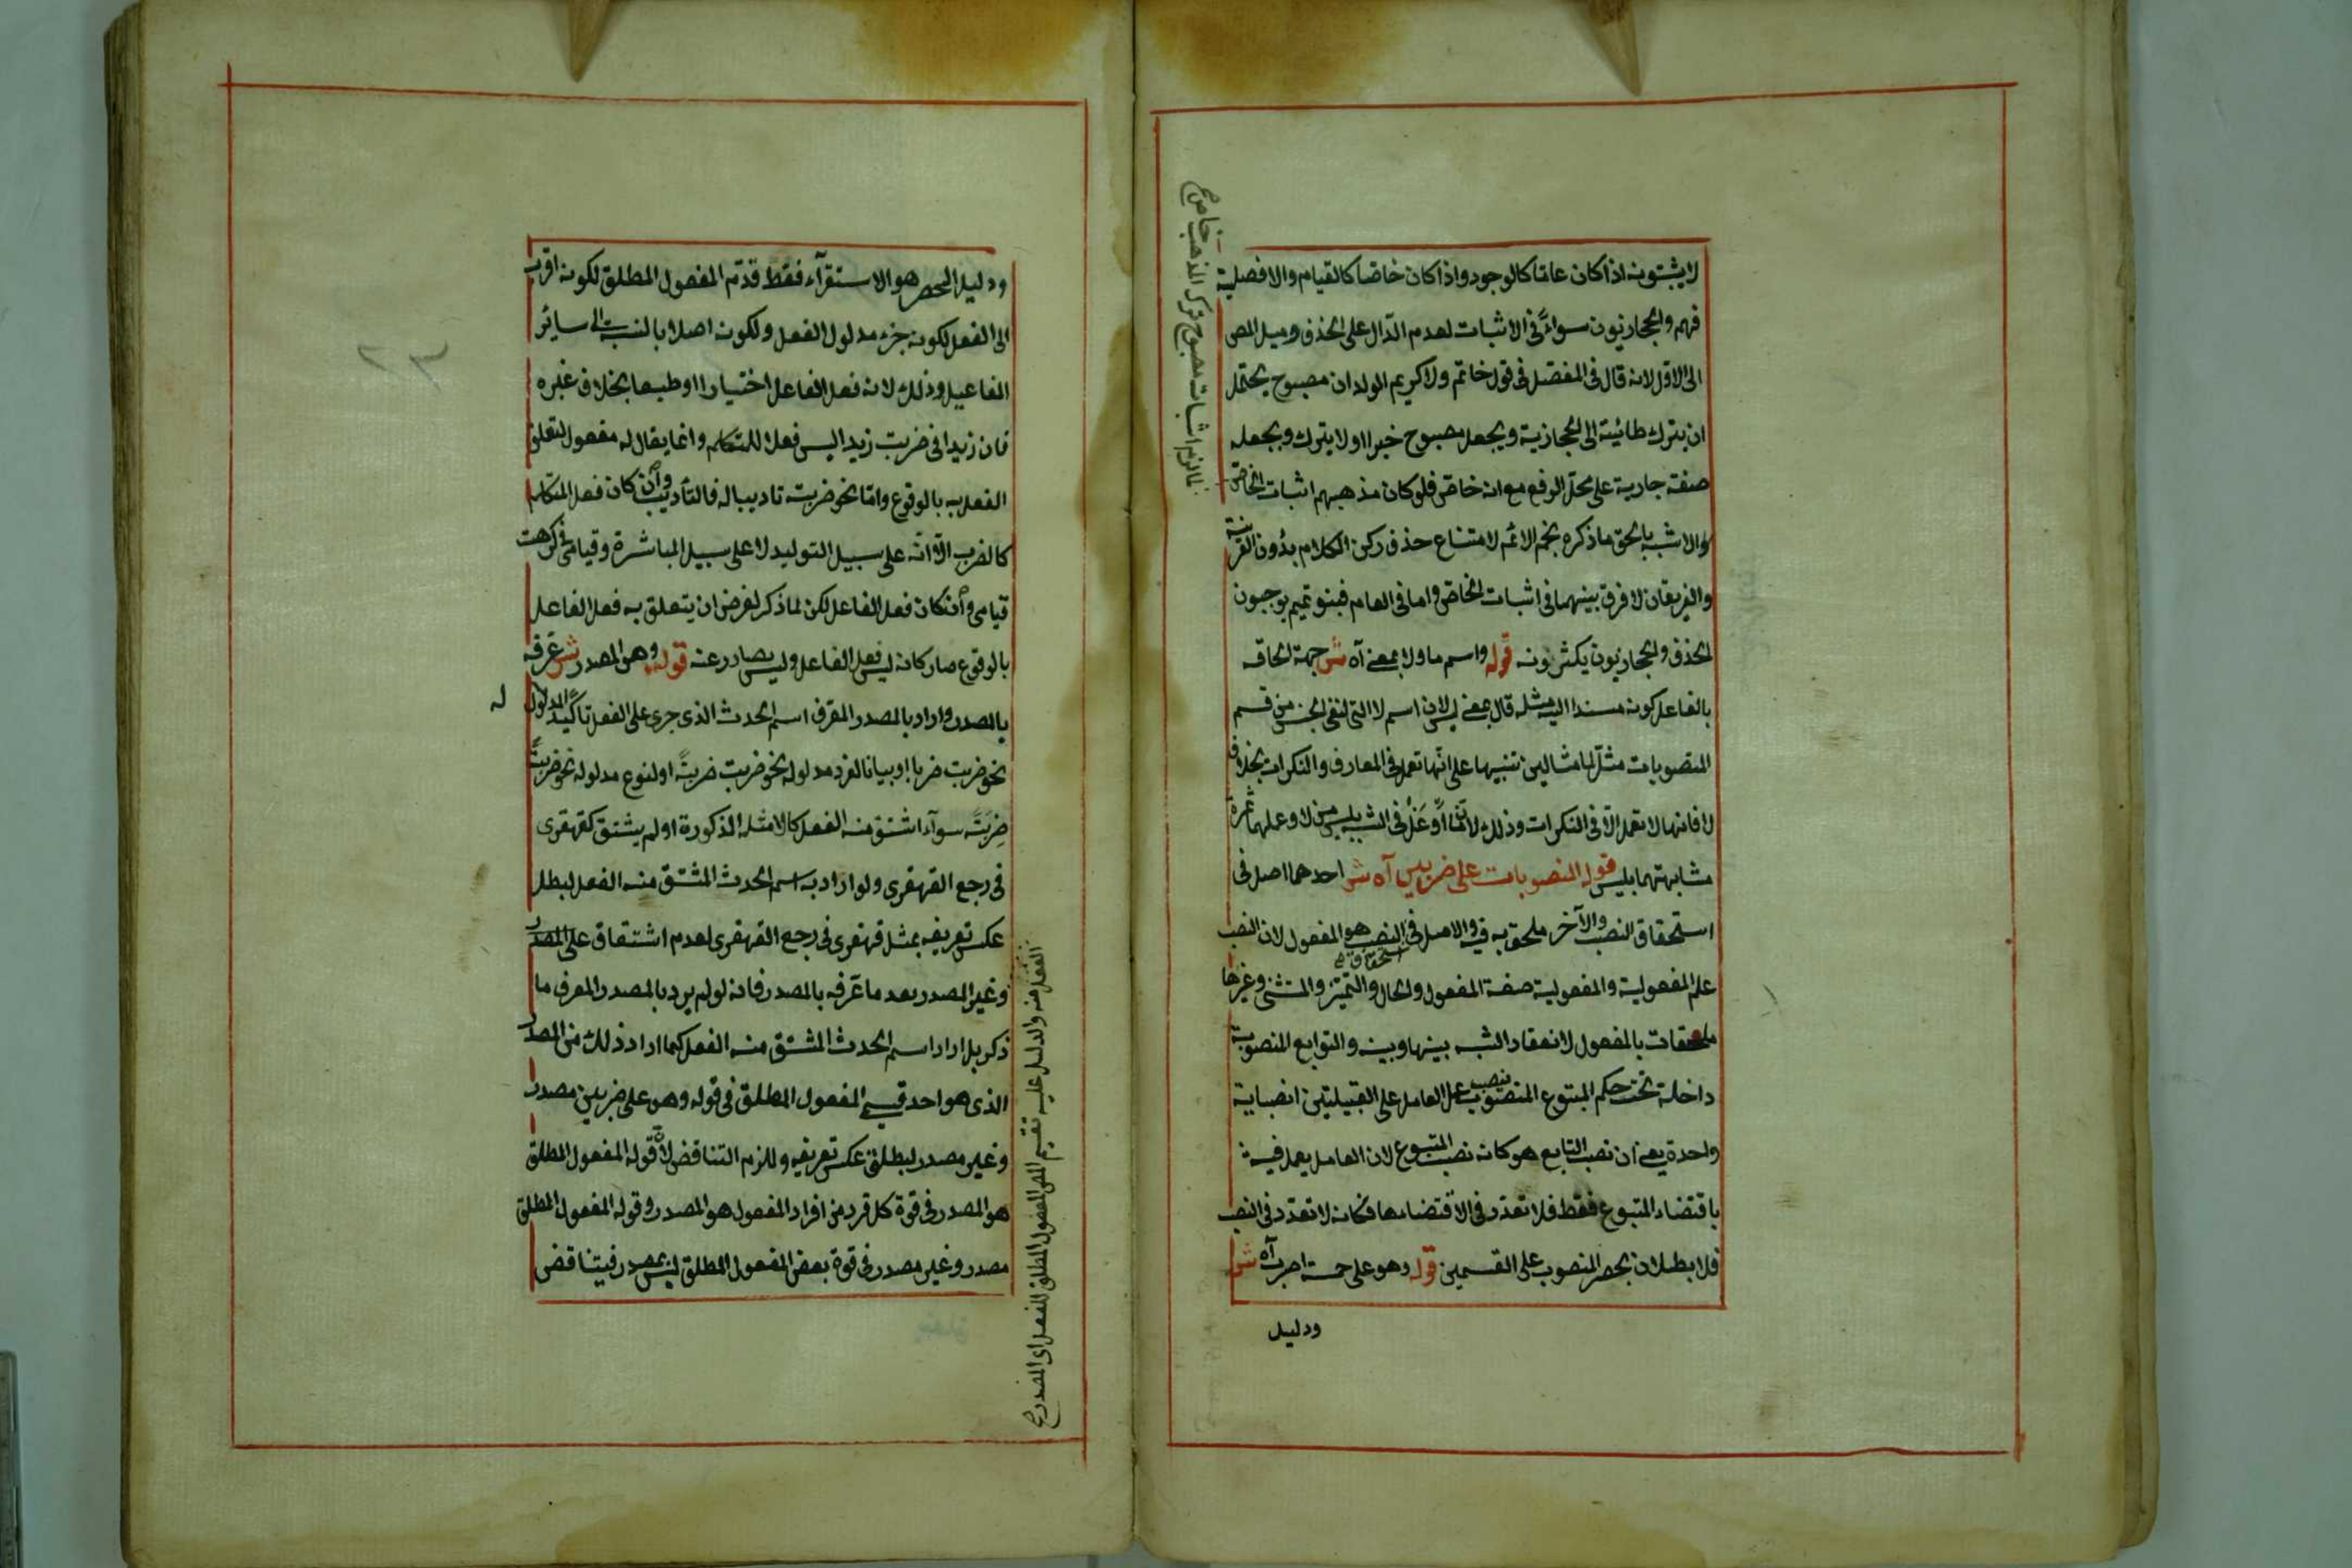 لا يثبتونه اذا كان عامّا كالوجود واذا كان خاصّا كالقيام والافضلية
فهم والحجازيون سواءً في الاثبات لعدم الدّال على الحذف وميل المص
الى الاوّل لانه قال في المفصّل في قول خاتم ولا كريم الولدان مصبوح يحتمل
ان يترك طائيته الى الحجازية ويجعل مصبوح خبرا او لا يترك ويجعله
صفة جارية على محلّ الرفع مع انه خاصّ فلو كان مذهبهم اثبات الخاصّ
والاشبه بالحق ما ذكره نجم الائمّه لامتناع حذف ركن الكلام بدون القرينة
والفريقان لا فرق بينهما في اثبات الخاصّ واما في العام فبنو تميم يوجبون
الحذف والحجازيون يكثرونه قوله واسم ما ولا بمعنى آه ش جهة الحاقه
بالفاعل كونه مسندا اليه مثله قال بمعنى ليس لان اسم لا التى لنفى الجنس من قسم
المنصوبات مثّل لها مثالين تنبيها على انّها تعمل في المعارف والنكرات بخلاف
لا فانها لا تعمل الّا في النكرات وذلك لانّ ما اَوغَلُ في الشبه بليس من لا وعملهما ثمرة
مشابهتهما بليس قوله المنصوبات على ضربين آه ش احدهما اصل في
استحقاق النصب والآخر ملحق به فيه والاصل في النصب هو المفعول لان النصب
استحقاق صح
علم المفعولية والمفعولية صفة المفعول والحال والتميّز والمستثنى وغيرها
ملحقات بالمفعول لانعقاد الشبه بينها وبينه والتوابع المنصوبة
داخلة تحت حكم المتبوع المنصوب ينصب عمل العامل على القبيلتين انصبابة
واحدة يعنى ان نصب التابع هو كانه نصب المتبوع لان العامل يعمل فيه
باقتضاء المتبوع فقط فلا تعدّد في الاقتضاء معا فكانه لا تعدّد في النصب
فلا بطلان بحصر المنصوب على القسمين قوله وهو على خمسة اضرب آه ش
ودليل
اثبات مصبوح ترك المذهب خاص
ودليل الحصر هو الاستقرآء فقط قدّم المفعول المطلق لكونه اقرب
الى الفعل لكونه جزء مدلول الفعل ولكونه اصلا بالنسبة الى سائر
المفاعيل وذلك لانه فعل الفاعل اختيارا او طبعا بخلاف غيره
فان زيدا في ضربت زيدا ليس فعلا للمتكلم وانما يقال له مفعول لتعلق
الفعل به بالوقوع وامّا نحو ضربت تاديبا له فالتأديب وان كان فعل المتكلم
كالضرب الّا انّه على سبيل التوليد لا على سبيل المباشرة وقيامى في كرهت
قيامى وان كان فعل الفاعل لكن لما ذكر لغرض ان يتعلق به فعل الفاعل
بالوقوع صار كانه ليس فعل الفاعل وليس بصادر عنه قوله وهو المصدر ش عرّفه
بالمصدر واراد بالمصدر المعرّف اسم الحدث الذى جرى على الفعل تاكيدًا لمدلوله
نحو ضربت ضربا او بيانا لفرد مدلوله نحو ضربت ضربةً او لنوع مدلوله نحو ضربت
ضِربَتً سوآء اشتق منه الفعل كالامثلة المذكورة او لم يشتق كقهقرى
في رجع القهقرى ولو اراد به اسم الحدث المشتق منه الفعل لبطل
عكس تعريفه بمثل قهقرى في رجع القهقرى لعدم اشتقاق على المصدر
وغير المصدر بعد ما عرّفه بالمصدر فانه لو لم يرد بالمصدر المعرف ما
ذكر بل اراد اسم الحدث المشتق منه الفعل كما اراد ذلك من المصدر
الذى هو احد قسمى المفعول المطلق في قوله وهو على ضربين مصدر
وغير مصدر لبطل عكس تعريفه وللزم التناقض لانّ قوله المفعول المطلق
هو المصدر في قوة كل فرد من افراد المفعول هو المصدر وقوله المفعول المطلق
مصدر وغير مصدر في قوة بعض المفعول المطلق ليس بمصدر فيتناقض
الفعل منه والدليل عليه تقسيم المص المفعول المطلق للفعل اى المصدر صح
٢٣